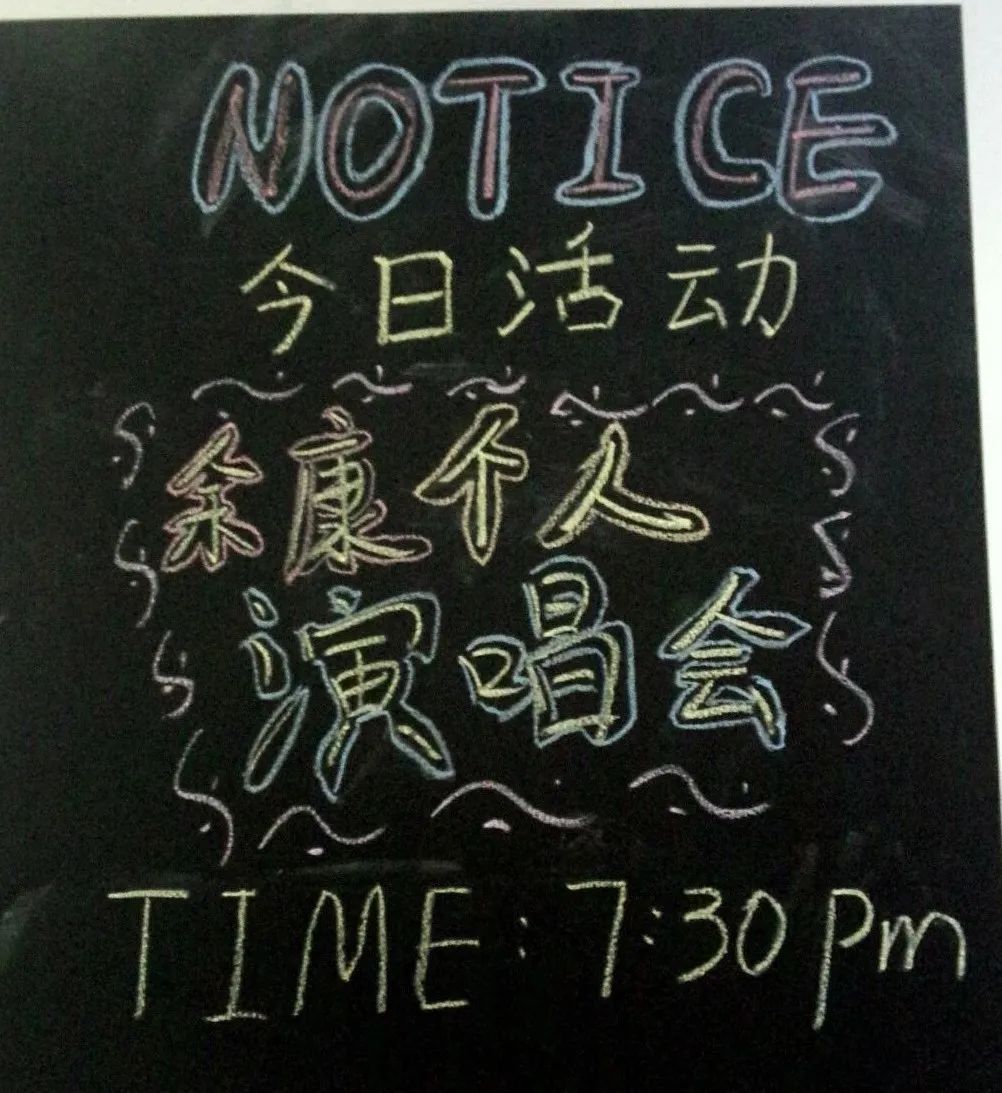 NOTICE
今日活动
余康个人
演唱会
TIME:7:30pm